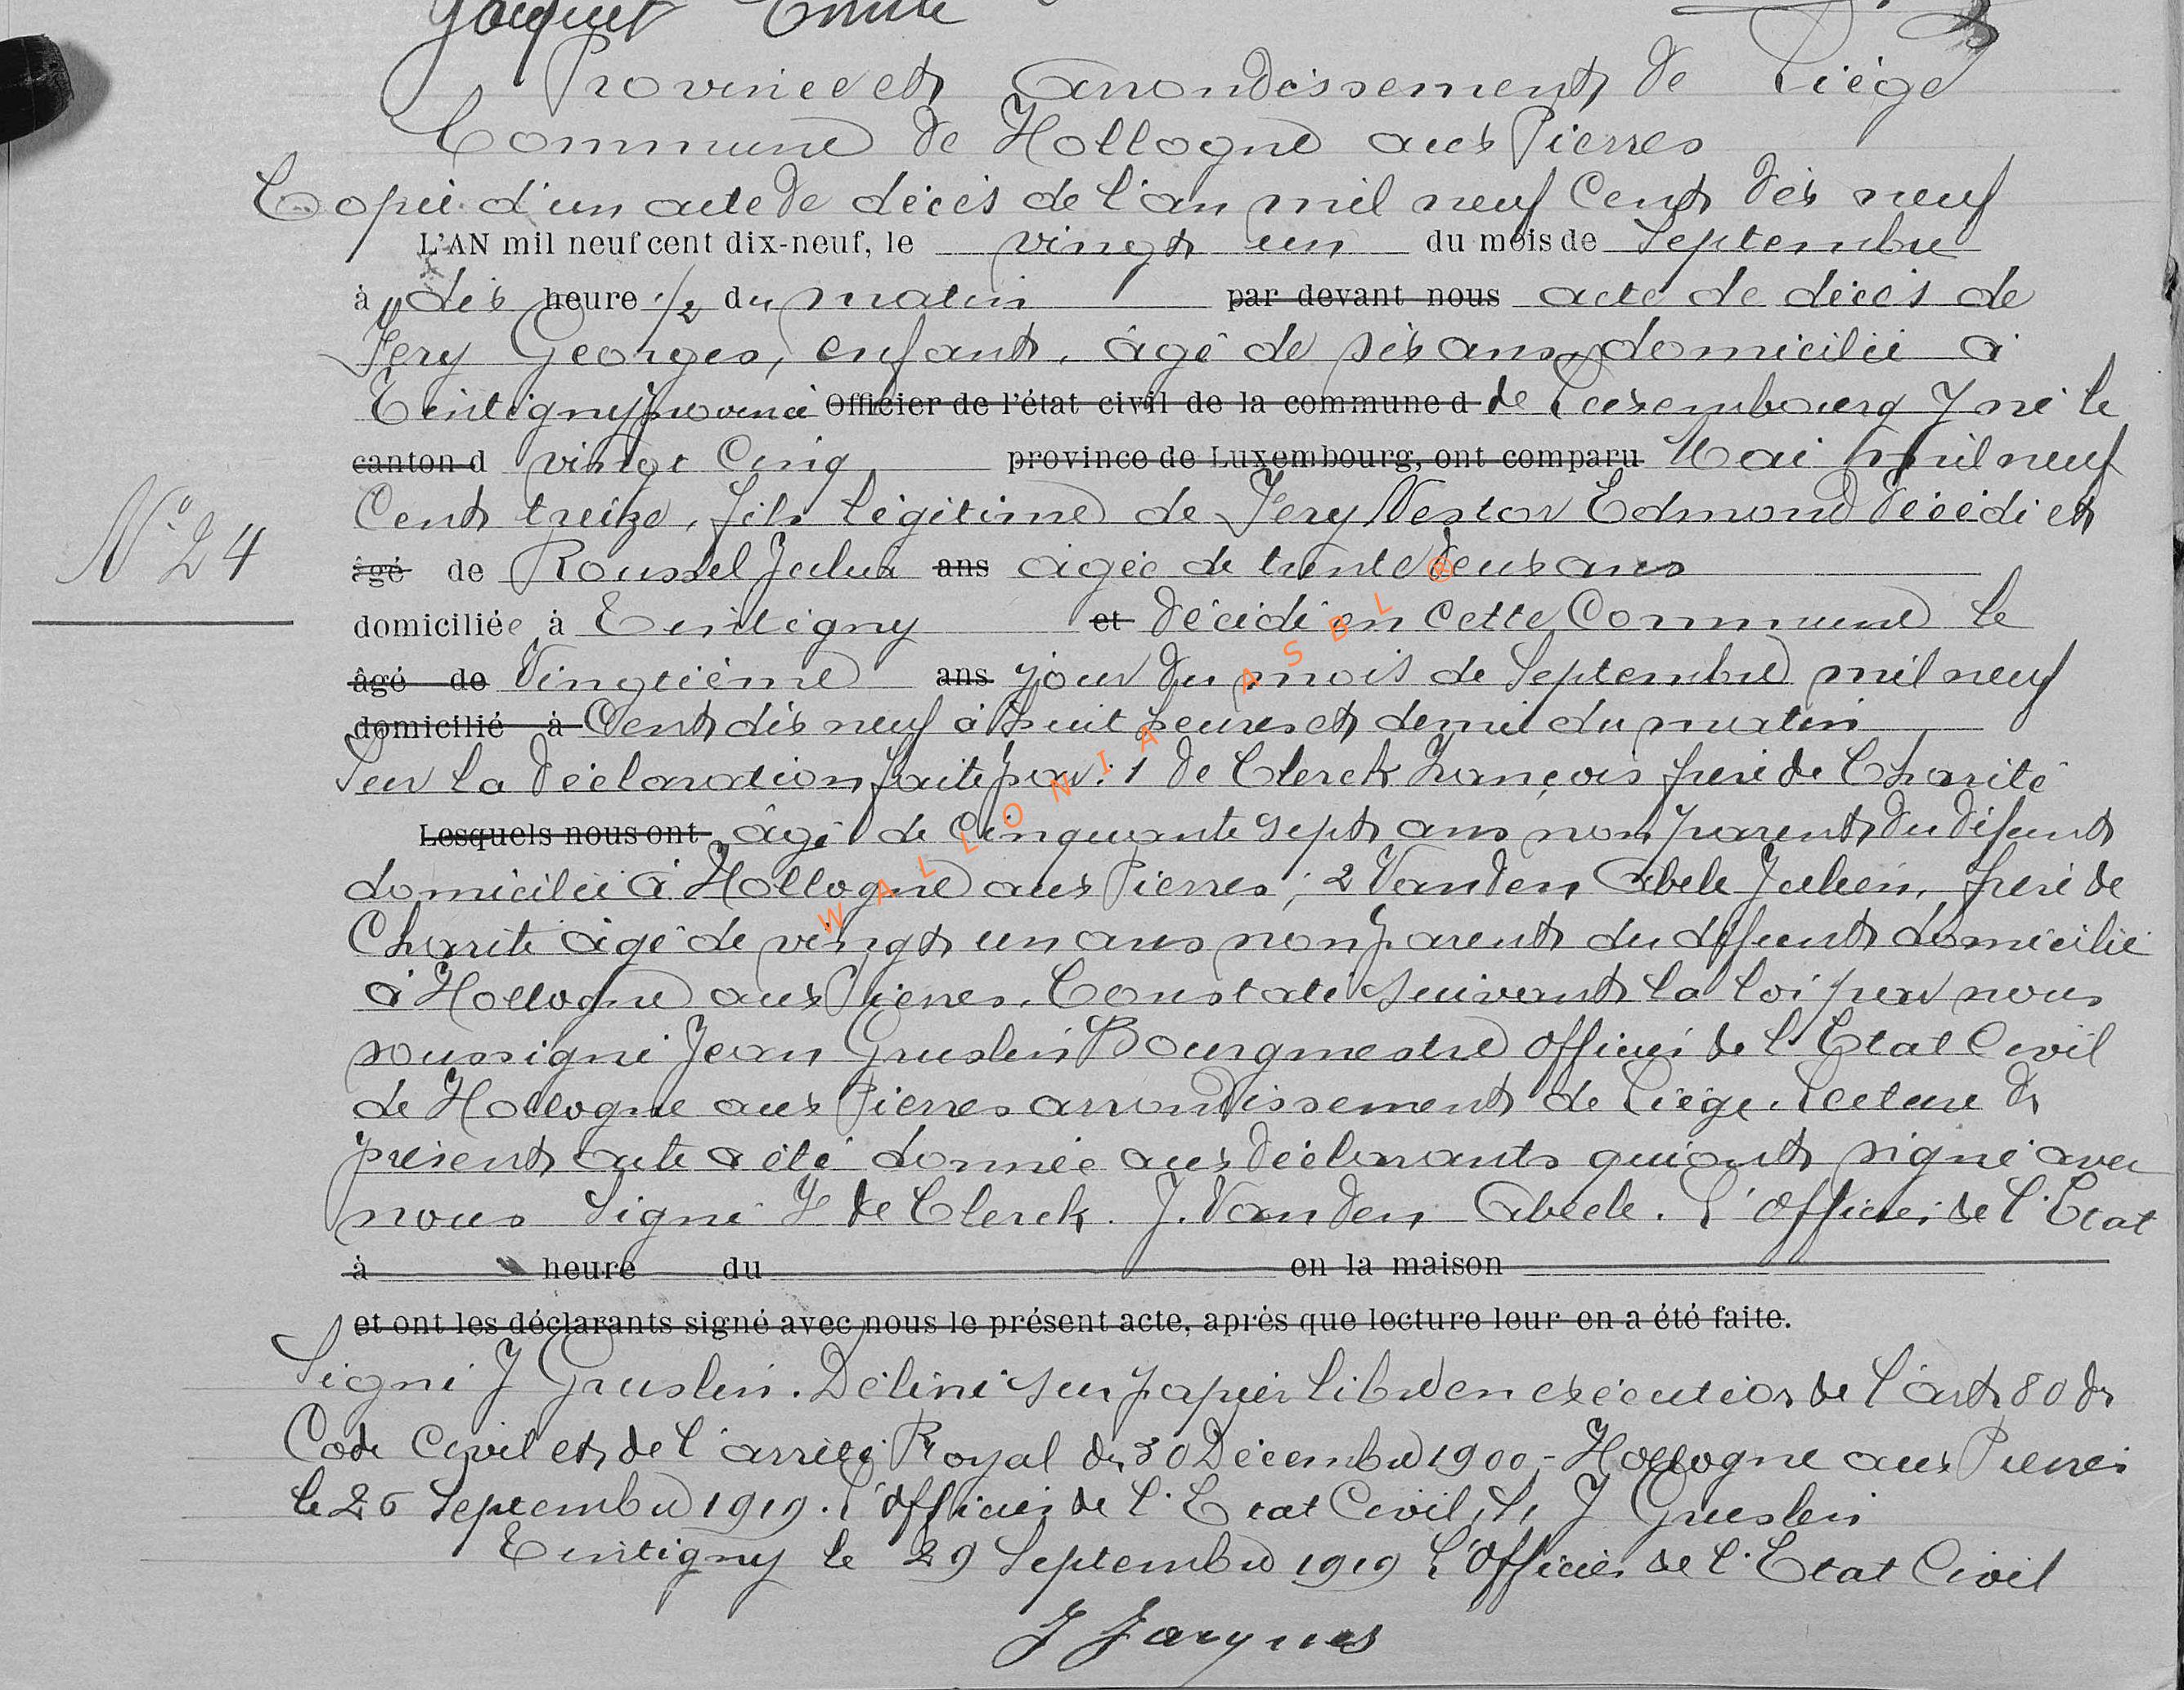 Jacquet Emile
Province et arrondissement de Liège
Commune de Hollogne aux Pierres
Copie d'un acte de décès de l'an mil neuf cent dix neuf
L'AN mil neuf cent dix-neuf, le vingt un du mois de Septembre
à dix heure 1/2 du matin par devant nous acte de décès de
Georges, enfant, âgé de six ans, domicilié à
Tintigny province Officier de l'état civil de la commune d de Luxembourg né le
canton d vingt cinq province de Luxembourg, ont comparu Mai mil neuf
Cent treize, fils légitime de Nestor Edmond décédé et
N° 24
âgé de Roussel Julia ans âgée de trente deux ans
domiciliée à Tintigny et décédé en cette Commune le
âgé de Vingtième ans jour du mois de Septembre mil neuf
domicilié à Cent dix neuf à huit heures et demie du matin
Sur la déclaration faite par : 1 De Clerck François frère de Charité
Lesquels nous ont âgé de Cinquante sept ans non parent du défunt
domicilié à Hollogne aux Pierres ; 2 Van Den Abeele Julien, frère de
Charité âgé de vingt un ans non parent du défunt domicilié
à Hollogne aux Pierres. Constaté suivant la loi par nous
soussigné Jean Gruslin Bourgmestre officier de l'Etat Civil
de Hollogne aux Pierres arrondissement de Liège. Lecture du
présent acte a été donnée aux déclarants qui ont signé avec
nous Signé De Clerck. J. Van Den Abeele. L'Officier de l'Etat
à heure du en la maison
et ont les déclarants signé avec nous le présent acte, après que lecture leur en a été faite.
Signé J Gruslin. Délivré sur papier libre en exécution de l'art 80 du
Code Civil et de l'arrêté Royal du 30 Décembre 1900 - Hollogne aux Pierres
le 26 Septembre 1919. L'Officier de l'Etat Civil, J Gruslin
Tintigny le 29 Septembre 1919 L'Officier de l'Etat Civil
J Jacques
WALLONIA ASBL ®